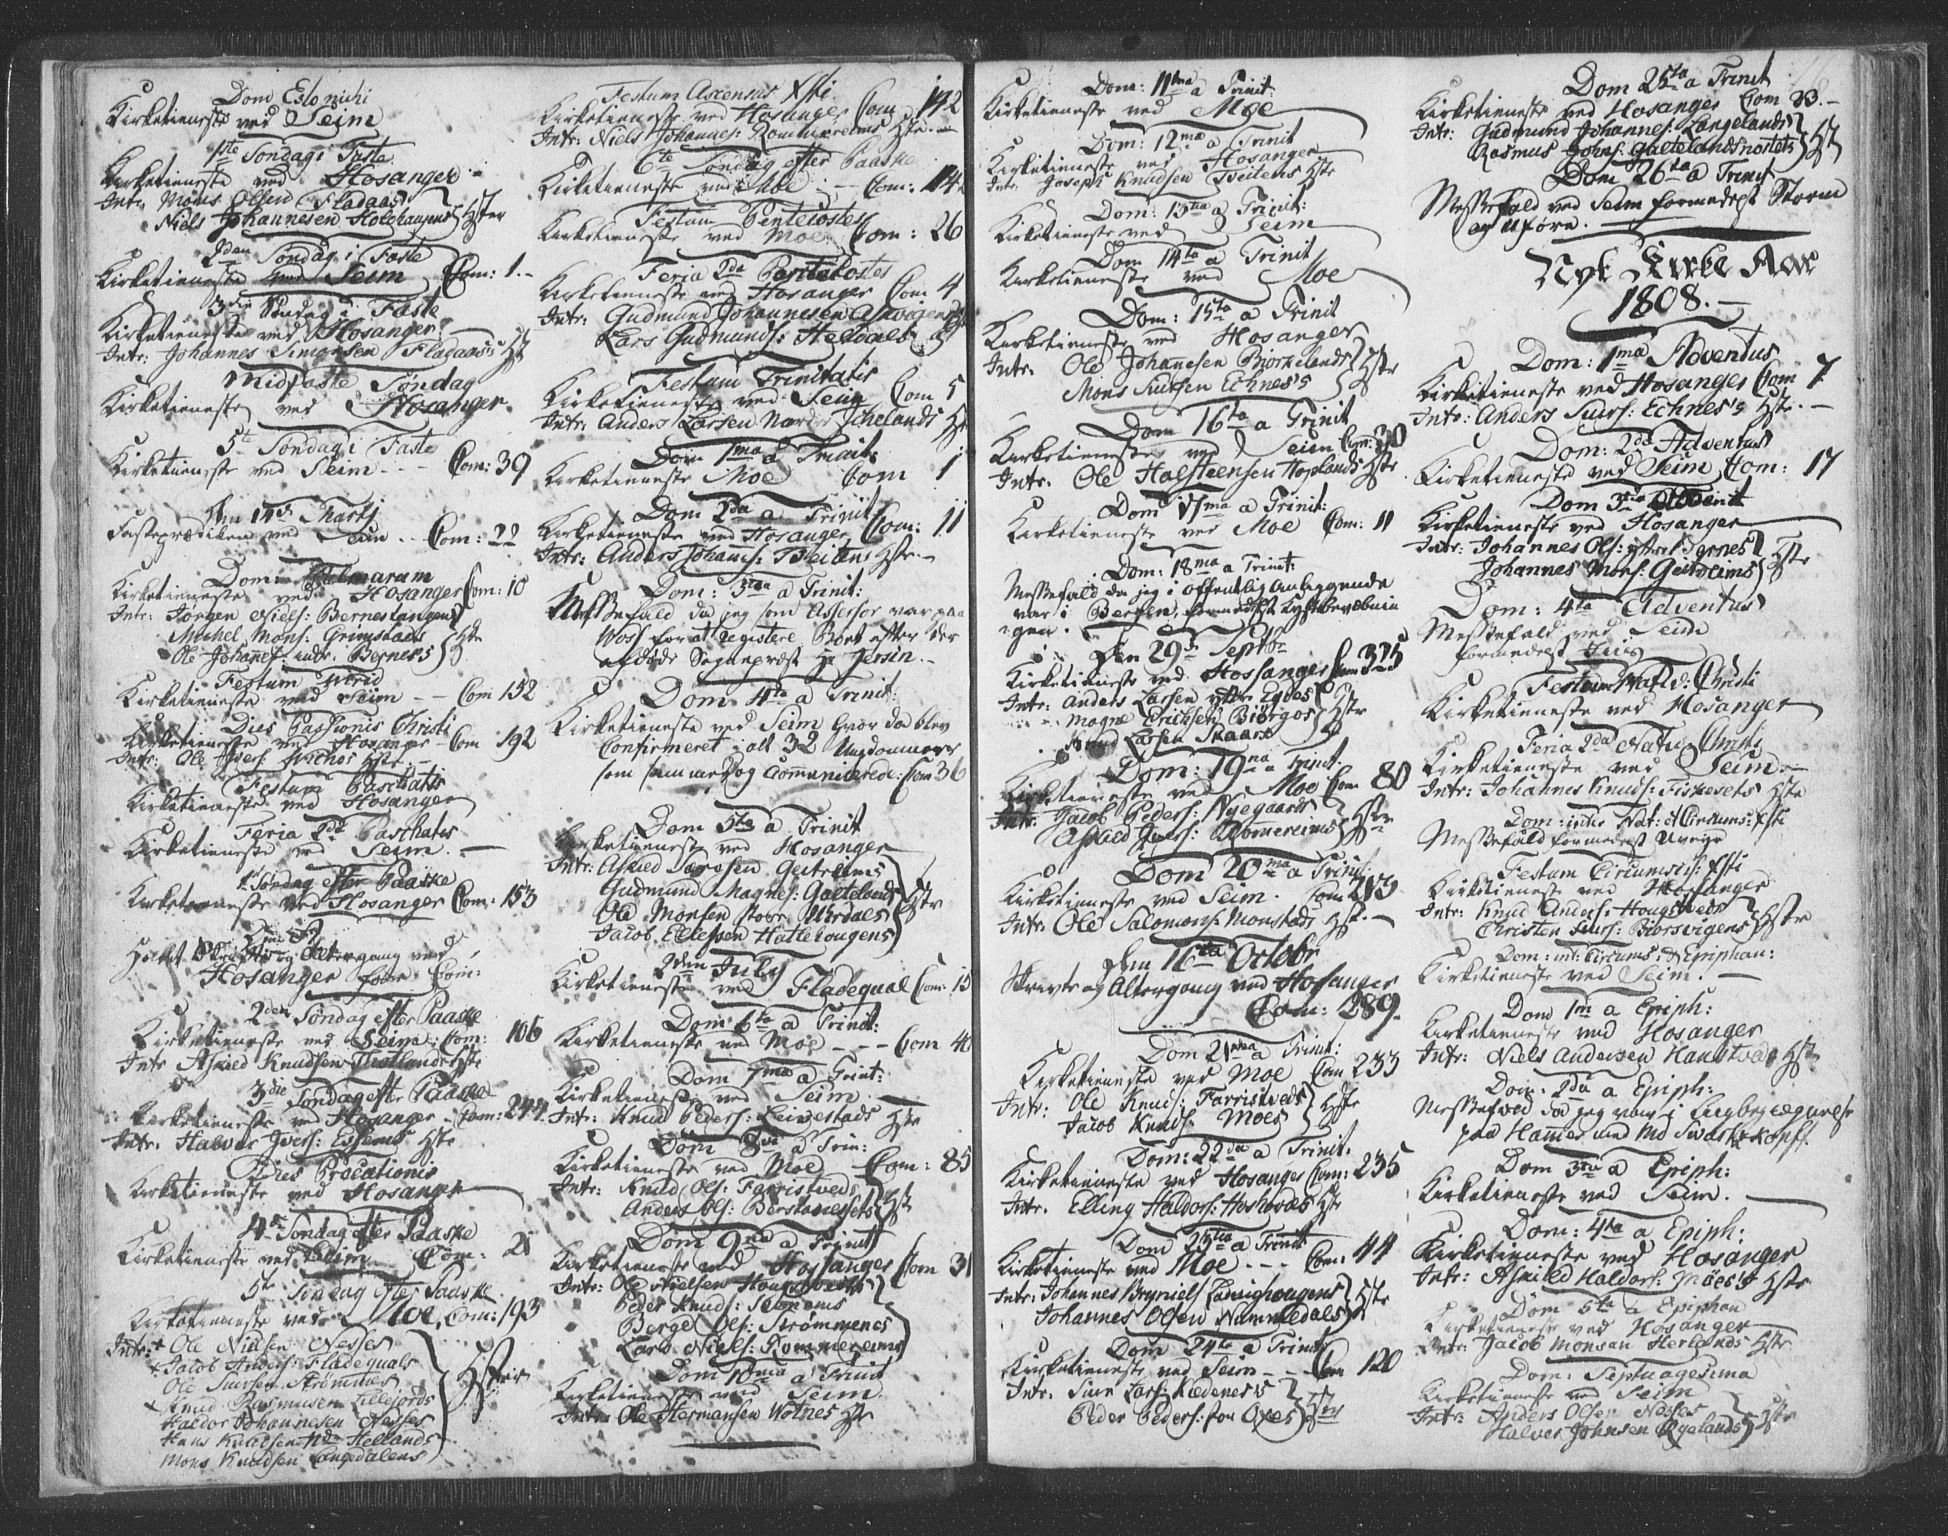 Dom Estomihi
Kirketieneste ved Seim
1ste Søndag i Faste
Kirketieneste ved Hosanger
Intr: Mons Olsen Fladaas
Niels Johannesen Hster
2den Søndag i Faste
Kirketieneste ved Seim Com: 1.
3die Søndag i Faste
Kirketieneste ved Hosanger
Intr: Johannes Simonsen Fladaas's H
Midfaste Søndag
Kirketieneste ved Hosanger.
5te Søndag i Faste
Kirketieneste ved Seim - - - Com: 39
Den 17de Martj
Fasteprædiken ved Seim - - Com: 22
Dom: Palmarum
Kirketieneste ved Hosanger Com: 10
Intr: Jørgen Niels: Bernestangens
Michel Mons: Grimstads
Ole Johannes: indre Bernes's Hste
Festum Virid
Kirketieneste ved Seim - - Com 152
Dies Passionis Christi
Kirketieneste ved Hosanger - Com 192
Intr: Ole Ivers: Hste
Festum Paschatis
Kirketieneste ved Hosanger
Feria 2da Paschatis
Kirketieneste ved Seim.
1ste Søndag efter Paaske
Kirketieneste ved Hosanger Com: 153
Holdt Skrifte og Altergang ved
Hosanger Com:
2den Søndag efter Paaske
Kirketieneste ved Seim: Com: 106
Intr Askild Knudsen Hste
3die Søndag efter Paaske
Kirketieneste ved Hosanger Com: 244
Intr: Halvor Ivers: Hste
Dies Precationis
Kirketieneste ved Hosanger
4de Søndag efter Paaske
Kirketieneste ved Seim Com: 28
5te Søndag efter Paaske
Kirketieneste ved Moe, Com: 193
Intr: Ole Nielsen Nesses
Jacob Anders: Fladequals
Ole Siursen Strømmes
Knud Rasmusen Lillefjords
Haldor Johannesen Nesses
Hans Knudsen Hellands
Mons Knudsen Langedalens
Festum Ascensus Xsti
Kirketieneste ved Hosanger Com 142
Intr: Niels Johannes: Rommereims Hste.
6te Søndag efter Paaske
Kirketieneste ved Moe - - Com: 114
Festum Pentecostes
Kirketieneste ved Moe Com: 26
Feria 2da Pentecostes
Kirketieneste ved Hosanger Com 4
Intr: Gudmund Johannesen
Lars Gudmunds: Heldals
Festum Trinitatis
Kirketieneste ved Seim Com 5
Intr: Anders Larsen Hste
Dom 1ma a Trinit:
Kirketieneste ved Moe Com 1
Dom 2da a Trinit:
Kirketieneste ved Hosanger Com: 11
Intr: Anders Johannes: Hste.
Dom: 3tia a Trinit:
Messefald da jeg som Assessor var paa
Woss for at registere Boet efter den
afdøde Sogneprest Hr Gersin.
Dom 4ta a Trinit:
Kirketieneste ved Seim hvor da blev
Confirmeret i alt 32 Ungdommer
som sammedag Communicerede: Com 36
Dom 5ta a Trinit
Kirketieneste ved Hosanger
Intr: Askild Geitreims
Gudmund Magnes: Gaatelands
Ole Monsen store Urdals Hste
Jacob Ellefsen Hattehougens
2den July
Kirketieneste ved Fladequal Com: 15
Dom 6ta a Trinit:
Kirketieneste ved Moe - - - Com 40
Dom 7ma a Trinit:
Kirketieneste ved Seim.
Intr: Knud Peders: Leirestads Hste
Dom 8va a Trin:
Kirketieneste ved Moe Com: 85
Intr: Knud Ols: Farristveds
Anders Ols: Hste
Dom 9na a Trinit
Kirketieneste ved Hossanger Com 31
Intr: Ole Nielsen
Peder Knuds:
Berge Ols: Strømmenes
Lars Niels: Rommereims
Dom 10ma a Trinit
Kirketieneste ved Seim.
Intr: Ole Hermansen Wolnes Hste
Dom: 11ma a Trinit:
Kirketieneste ved Moe
Dom: 12ma a Trinit
Kirketieneste ved Hosanger
Intr: Joseph Knudsen Tveitens Hste
Dom: 13tia a Trinit:
Kirketieneste ved Seim
Dom 14ta a Trinit
Kirketieneste ved Moe
Dom: 15ta a Trinit
Kirketieneste ved Hosanger
Intr: Ole Johannesen Biørkelands
Mons Siursen Echnes's Hste
Dom 16ta a Trinit
Kirketieneste ved Seim Com: 30
Intr: Ole Halsteensen Hoplands Hste
Dom 17ma a Trinit:
Kirketieneste ved Moe Com: 11
Dom: 18ma a Trinit:
Messefald da jeg i offentlig Anliggende
var i Bergen, formedelst
Den 29de Septbr
Kirketieneste ved Hossanger Com 375
Intr: Anders Larsen ytre Eydes
Magne Erichsen Biørgos Hste
Knud Larsen Skaars
Dom: 19na a Trinit.
Kirketieneste ved Moe Com 80
Intr: Jacob Peders: Nyegaards
Askild Rommereims Hste
Dom 20ma a Trinit:
Kirketieneste ved Seim. Com 213
Intr: Ole Salomons: Monstads Hst.
Den 16ta Octobr
Skrivte og Altergang ved Hosanger
Com: 289.
Dom 21ma a Trinit:
Kirketieneste ved Moe Com 233
Intr: Ole Knuds: Farristveds
Jacob Knuds: Moes Hste
Dom: 22da a Trinit.
Kirketieneste ved Hosanger Com: 235
Intr. Elling Haldors: Hste
Dom 23tia a Trinit
Kirketieneste ved Moe - - - Com: 44
Intr: Johannes Bryniels: Ladvighougens
Johannes Olsen Nammedals Hste
Dom 24ta a Trinit
Kirketieneste ved Seim - - Com 120
Intr: Siur Lars: Kedenes's
Peder Peders: for Oxes
Dom 25ta a Trinit
Kirketieneste ved Hosanger Com 23.
Intr: Gudmund Johannes: Langelands
Rasmus Johns: Hst
Dom 26ta a Trinit
Messefald ved Seim formedelst Storm
og Uføre.
Nyt Kirke Aar
1808.
Dom: 1ma Adventus
Kirketieneste ved Hosanger Com 7
Intr: Anders Siurs: Echnes's Hste.
Dom: 2da Adventus
Kirketieneste ved Seim Com: 17
Dom 3tia Advent
Kirketieneste ved Hosanger
Intr: Johannes Ols: ytre Bernes
Johannes Mons: Geitreims Hste
Dom: 4ta Adventus
Messefald ved Seim
formedelst Iis
Festum Nativ: Christi
Kirketieneste ved Hosanger
Feria 2da Nativ Christi
Kirketieneste ved Seim.
Intr: Johannes Knuds: Fiskesets Hste
Dom: inter Nat: et Circums: Xsti
Messefald formedelst Uveyr
Festum Circumcis: Xsti
Kirketieneste ved Hosanger
Intr: Knud Anders: Hougstveds
Christen Siurs: Biorsvigens Hste
Dom: int: Circums: & Epiphan:
Kirketieneste ved Seim.
Dom 1ma a Epiph:
Kirketieneste ved Hosanger
Intr: Niels Andersen Haukstveds Hste
Dom: 2da a Epiph:
Messefald da jeg var i Liigbegiegnelse
paa Hammer med Md Swartzkopf
Dom 3tia a Epiph:
Kirketieneste ved Seim.
Dom: 4ta a Epiph:
Kirketieneste ved Hosanger
Intr: Askild Haldors: Moes's Hste
Dom 5ta a Epiphan
Kirketieneste ved Hosanger
Intr: Jacob Monsen Herlands Hste
Dom: Septuagesima
Kirketieneste ved Seim
Intr: Anders Olsen Nesses
Halvor Johnsen Hste